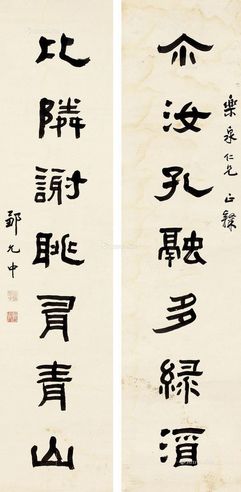 尒汝孔融多綠酒
樂泉仁兄 正隸
比隣謝朓有青山
鄒允中